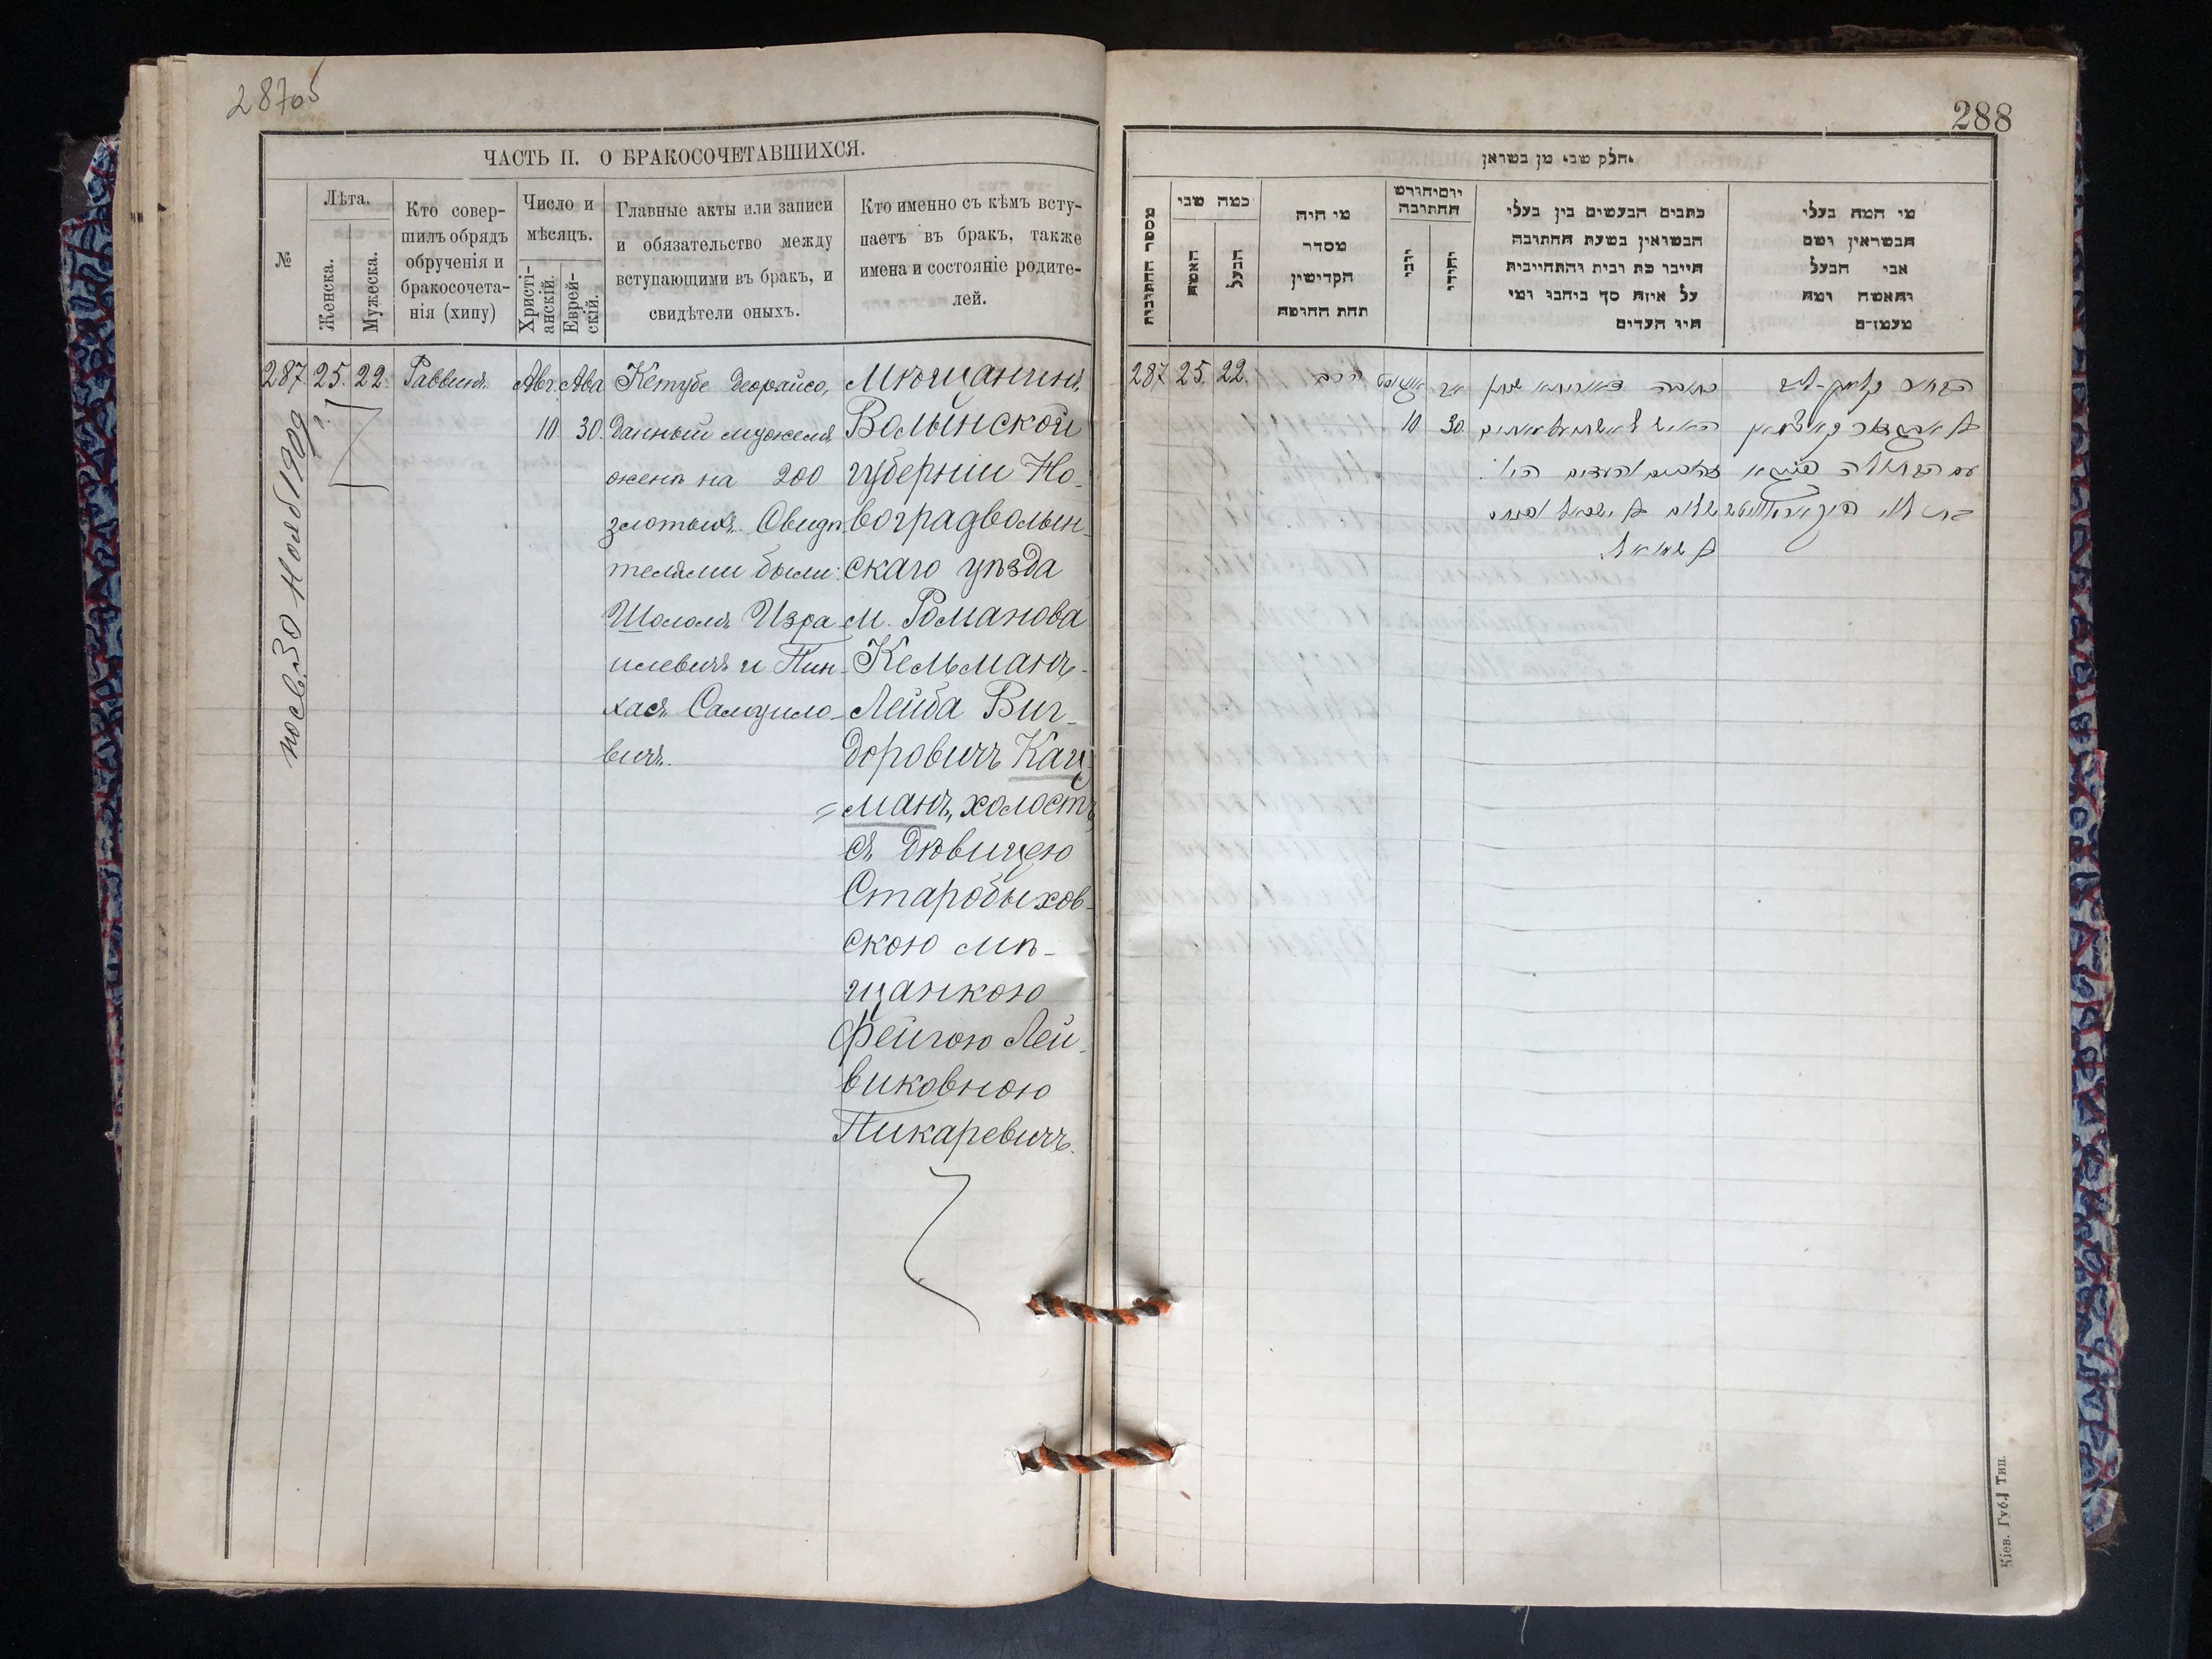 287об
ЧАСТЬ II. О БРАКОСОЧЕТАВШИХСЯ.
№
Лѣта.
Женска.
Мужеска.
Кто совер-
шилъ обрядъ
обрученія и
бракосочета-
нія (хипу)
Число и
мѣсяцъ.
Христі-
анскій.
Еврей-
скій.
Главные акты или записи
и обязательство между
вступающими въ бракъ, и
свидѣтели оныхъ.
Кто именно съ кѣмъ всту-
паетъ въ бракъ, также
имена и состояніе родите-
лей.
287. 25. 22. Раввинъ. Авг. Ава
10. 30.
Кетубе деорайсо,
данный мужемъ
женѣ на 200
злотыхъ. Свидѣ-
телями были:
Шоломъ Изра-
илевичъ и Пин-
хасъ Самуило-
вичъ.
Мѣщанинъ
Волынской
губерніи Но-
воградволын-
скаго уѣзда
м. Романова
Кельманъ-
Лейба Виг-
доровичъ Кац-
=манъ, холостъ,
съ дѣвицею
Старобыхов-
скою мѣ-
щанкою
Фейгою Лей-
виковною
Пикаревичъ.
30 Нояб 1909
288
חלק שני מן נשואין
מספר החתונות
כמה שני
האשה
הבעל
מי היה
מסדר
הקדישין
תחת החופה
יום וחודש
החתונה
יוני
יהודי
כתבים הנעשים בין בעלי
הנשואין בשעת החתונה
היינו כת ובית והתחייבות
על איזה סך ביהבו ומי
היו העדים
מי המה בעלי
הנשואין ושם
אבי הבעל
והאשה ומה
מעמדם
287. 25. 22. הרב אוגוסט אב
10. 30.
כתובה דאורייתא
שלום ב ישראל ופנחס
ב שמואל.
Кіев. Губ. Тип.